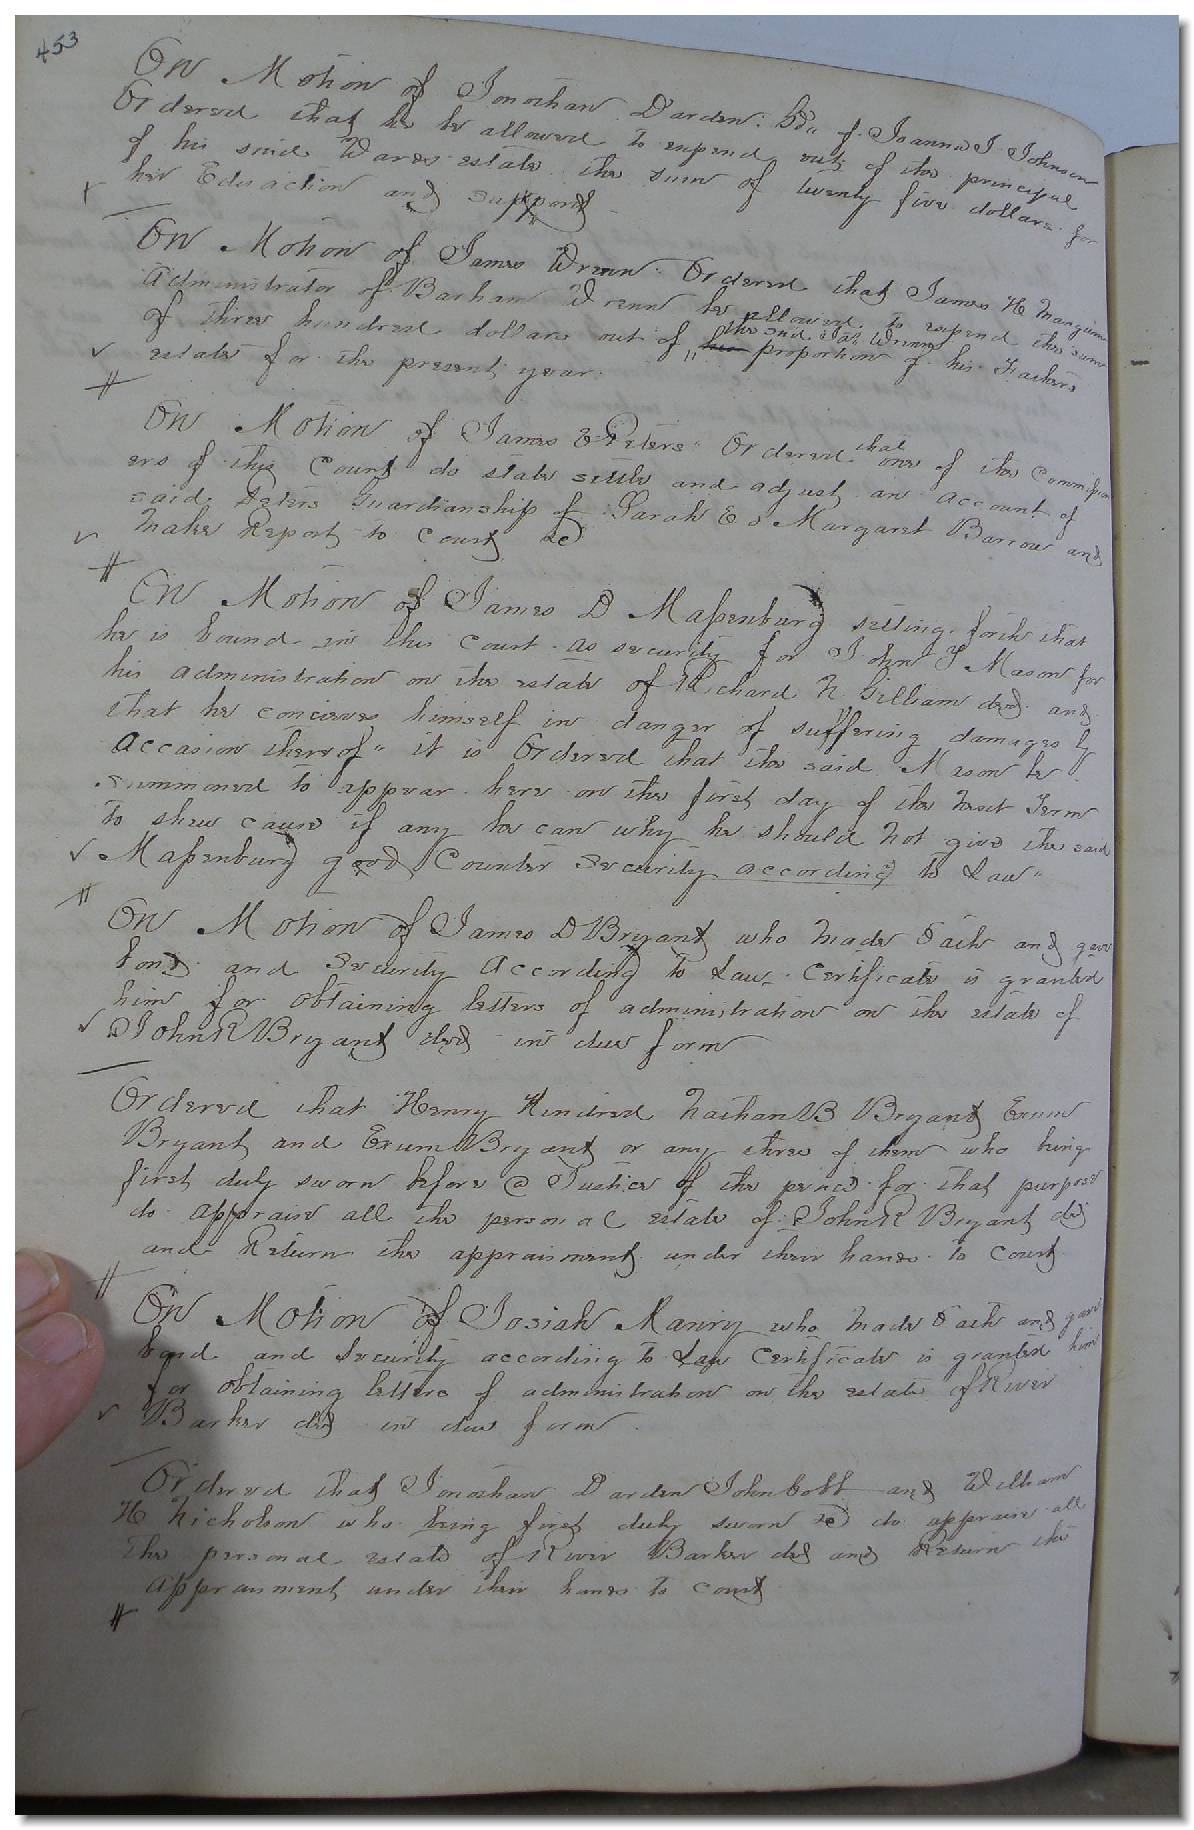 453
On Motion of Jonathan Darden Gdn of Joanna J Johnson
Ordered that he be allowed to expend out of the principal
of his said Wards estate the sum of twenty five dollars for
her Education and support
On Motion of James Wrenn Ordered that James H Mangum
Administrator of Barham Wrenn be allowed to expend the sum
of three hundred dollars out of his the said Jas Wrenns proportion of his Fathers
estate for the present year.
On Motion of James E Peters Ordered that one of the Commission
ers of this Court do state settle and adjust an account of
said Peters Guardianship of Sarah E & Margaret Barrow and
make Report to Court &c
On Motion of James D Massenburg setting forth that
he is bound in this Court as security for John Y Mason for
his administration on the estate of Richard H Gilliam decd and
that he concieves himself in danger of suffering damages by
Accasion thereof" it is Ordered that the said Mason be
summoned to appear here on the first day of the next Term
to shew cause if any he can why he should not give the said
Massenburg good Counter Security according to Law"
On Motion of James D Bryant who made oath and gave
bond and Security According to Law Certificate is granted
him for obtaining letters of administration on the estate of
John R Bryant decd in due form
Ordered that Henry Kindred Nathan B Bryant Exum
Bryant and Exum Bryant or any three of them who being
first duly sworn before a Justice of the peace for that purpose
do appraise all the personal estate of John R Bryant decd
and Return the appraisment under their hands to Court
On Motion of Josiah Manry who made oath and gave
bond and Security according to Law Certificate is granted him
for obtaining letters of administration on the estate of River
Barker decd in due form
Ordered that Jonathan Darden John Cobb and William
H Nicholson who being first duly sworn &c do appraise all
the personal estate of River Barker decd and Return the
appraisment under their hands to Court